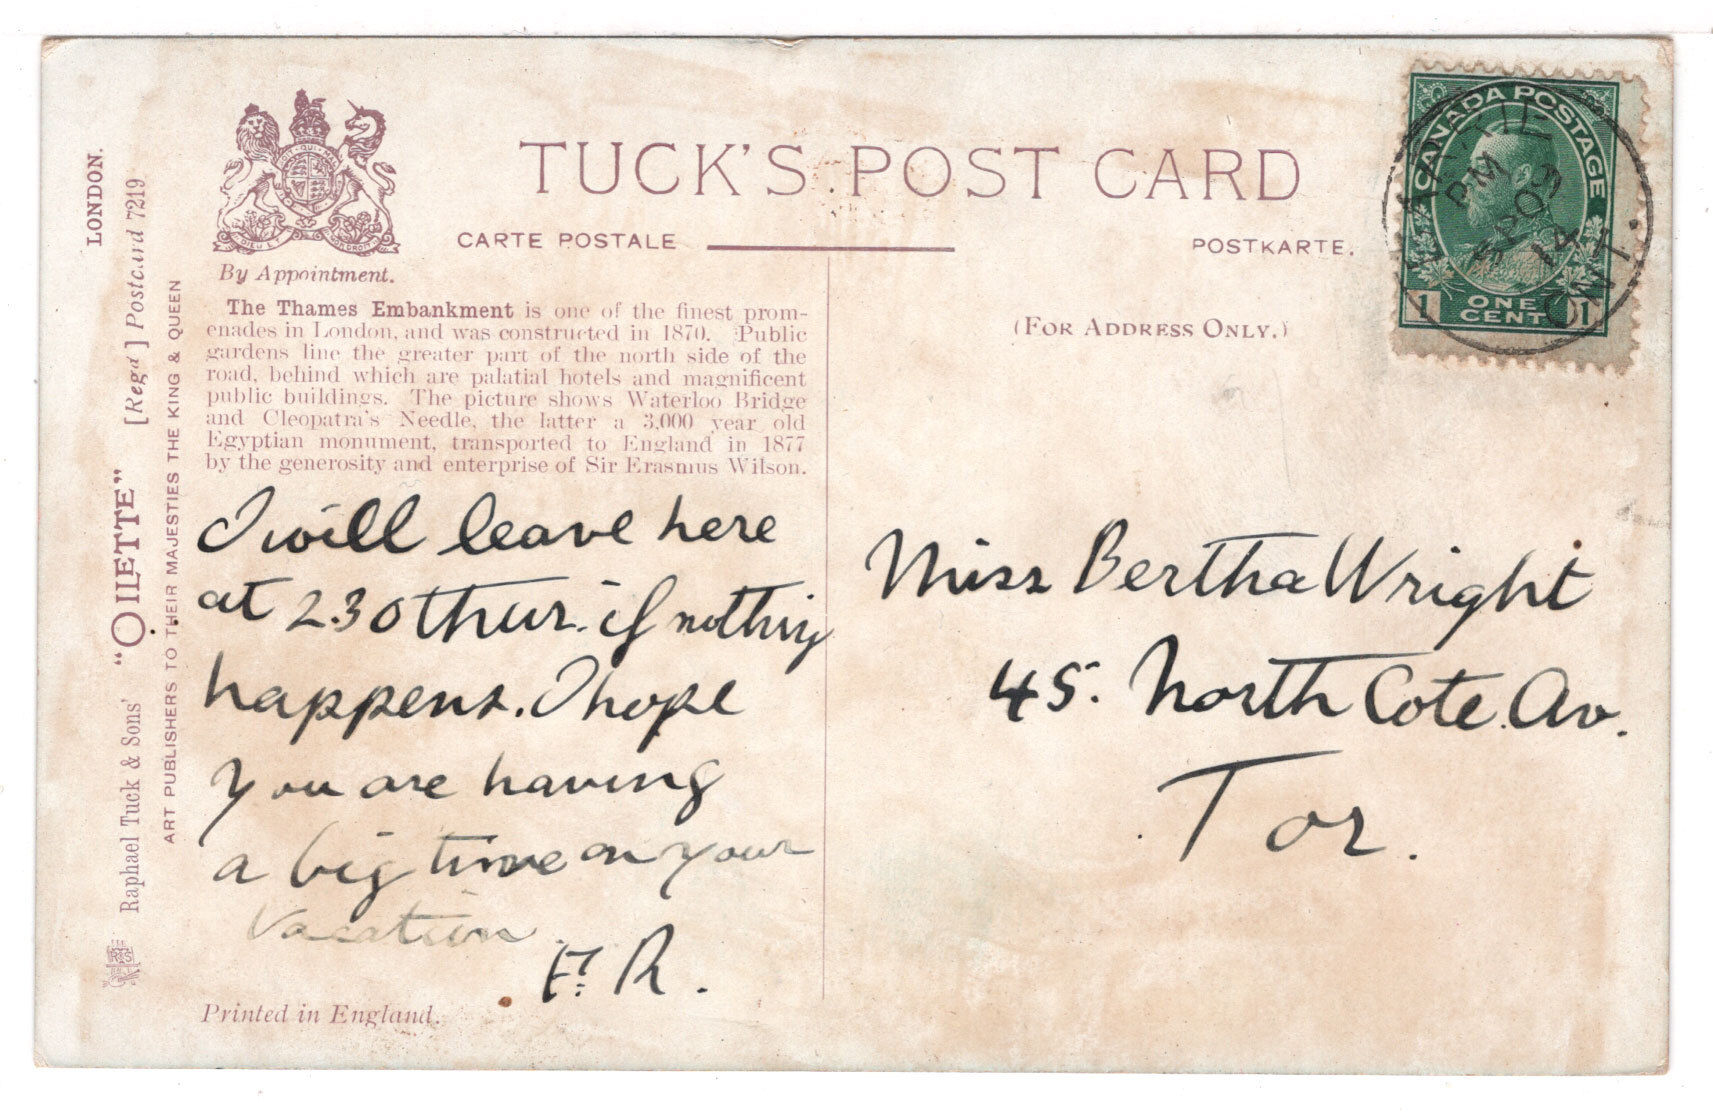 TUCK'S POST CARD
CARTE POSTALE
POSTKARTE.
By Appointment.
The Thames Embankment is one of the finest prom-
enades in London, and was constructed in 1870. Public
gardens line the greater part of the north side of the
road, behind which are palatial hotels and magnificent
public buildings. The picture shows Waterloo Bridge
and Cleopatra's Needle, the latter a 3,000 year old
Egyptian monument, transported to England in 1877
by the generosity and enterprise of Sir Erasmus Wilson.
I will leave here
at 2.30 thur. if nothing
happens. I hope
you are having
a big time on your
vacation
F. R.
Printed in England.
(FOR ADDRESS ONLY.)
Miss Bertha Wright
45. North Cote. Av.
Tor.
CANADA POSTAGE
1 ONE CENT 1
PM
SP 09
14
ONT.
LONDON.
Raphael Tuck & Sons' "OILETTE" [Regd] Postcard 7219
ART PUBLISHERS TO THEIR MAJESTIES THE KING & QUEEN